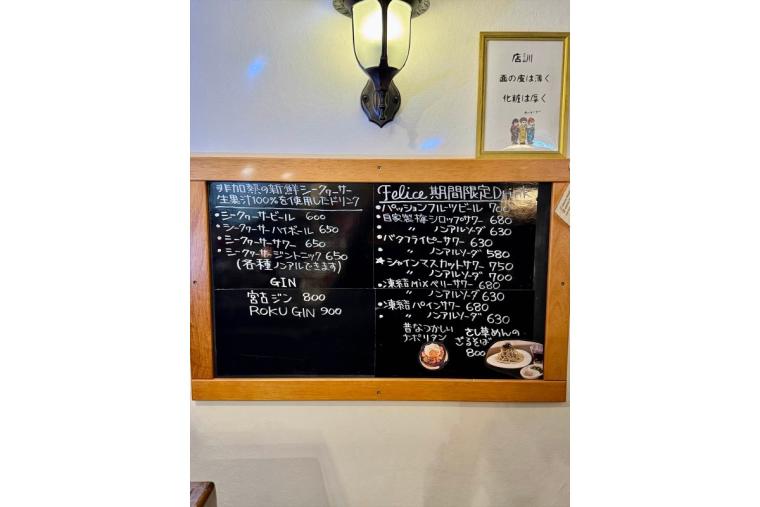 店訓
面の皮は薄く
化粧は厚く
非加熱の新鮮シークヮーサー
生果汁100%を使用したドリンク
・シークヮーサービール 600
・シークヮーサーハイボール 650
・シークヮーサーサワー 650
・シークヮーサージントニック 650
(各種ノンアルできます)
GIN
宮古ジン 800
ROKU GIN 900
Felice 期間限定Drink
・パッションフルーツビール 700
・自家製梅シロップのサワー 680
・ 〃 ノンアルソーダ 630
・バタフライピーサワー 630
・ 〃 ノンアルソーダ 580
★シャインマスカットサワー 750
・ 〃 ノンアルソーダ 700
・凍結Mixベリーサワー 680
・ 〃 ノンアルソーダ 630
・凍結パインサワー 680
・ 〃 ノンアルソーダ 630
昔なつかしい
ナポリタン
さし草めんの
ざるそば
800